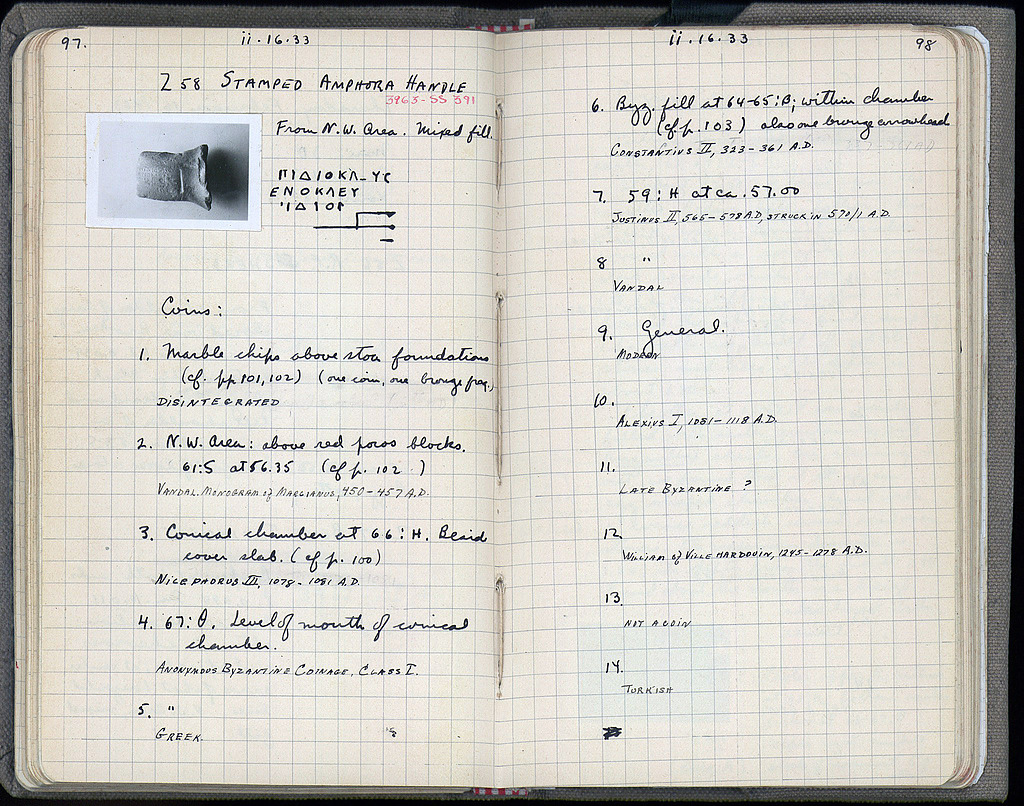 97.
ii·16·33
Z 58 STAMPED AMPHORA HANDLE
3963-SS 391
From N.W. Area. Mixed fill.
ΕΝΟΚΛΕΥ
Coins:
1. Marble chips above stoa foundations
(cf. pp 101, 102) (one coin, one bronze frag.)
DISINTEGRATED
2. N.W. Area: above red poros blocks.
61:S at 56.35 (cf p. 102 )
VANDAL. MONOGRAM of MARCIANUS, 450-457 A.D.
3. Conical chamber at 66:H. Beside
cover slab. (cf p. 100)
NICEPHORUS III, 1078-1081 A.D.
4. 67:Θ. Level of mouth of conical
chamber.
ANONYMOUS BYZANTINE COINAGE, CLASS I.
5. "
GREEK.
ii·16·33
98
6. Byz. fill at 64-65:B; within chamber
(cf p. 103) also one bronze arrowhead
CONSTANTIUS II, 323-361 A.D.
7. 59:H at ca. 57.00
JUSTINUS II, 565-578 A.D, STRUCK IN 570/1 A.D.
8 "
VANDAL
9. General.
MODERN
10.
ALEXIUS I, 1081-1118 A.D.
11.
LATE BYZANTINE ?
12.
WILLIAM of VILLEHARDOUIN, 1245-1278 A.D.
13.
NOT A COIN
14.
TURKISH